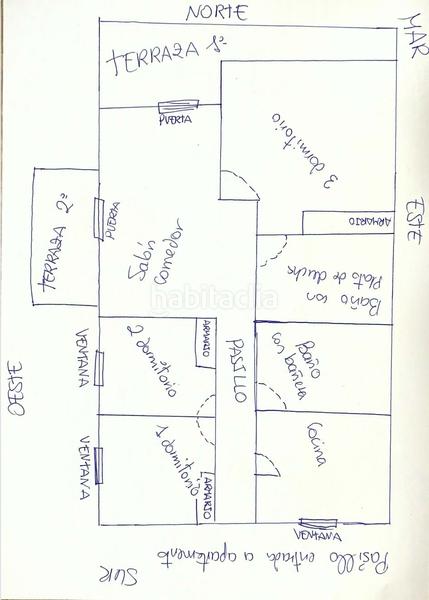 NORTE
MAR
TERRAZA 1ª
PUERTA
3 dormitorio
ARMARIO
ESTE
TERRAZA 2ª
PUERTA
Salón
Comedor
Baño con
Plato de ducha
habitaclia
VENTANA
2 dormitorio
ARMARIO
PASILLO
Baño
con bañera
OESTE
VENTANA
dormitorio 1
ARMARIO
Cocina
VENTANA
Pasillo entrada a apartamento
SUR